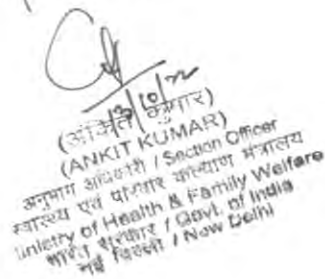 13/10/22
(अंकित कुमार)
(ANKIT KUMAR)
अनुभाग अधिकारी / Section Officer
स्वास्थ्य एवं परिवार कल्याण मंत्रालय
Ministry of Health & Family Welfare
भारत सरकार / Govt. of India
नई दिल्ली / New Delhi